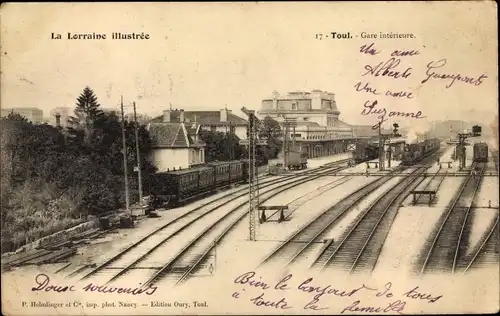 La Lorraine illustrée
17 - Toul. - Gare intérieure.
Un ami
Alberte
Une amie
Suzanne
Doux souvenirs
Bien le bonjour de tous
à toute la famille
P. Helmlinger et Cie, imp. phot. Nancy. - Edition Oury, Toul.